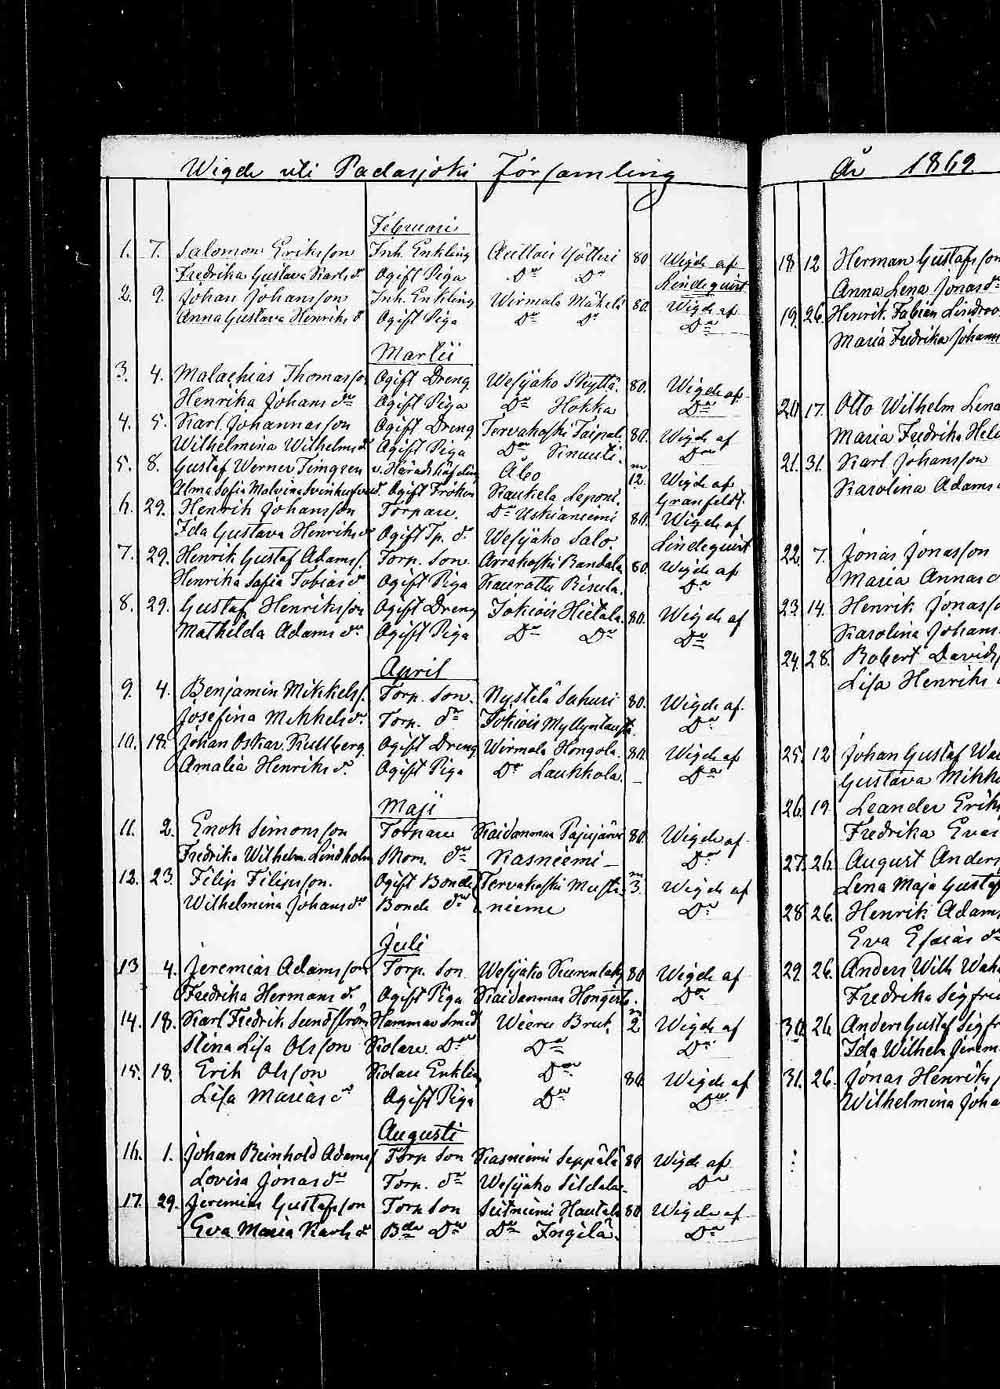 Wigde uti Padasjoki Församling
Februari
1. 7. Salomon Eriksson Inh. Enkling Auttois Ylötturi 80 Wigde af
Fredrika Gustava Karls dr Ogift Piga Do Do Lindequist
2. 9. Johan Johansson Inh. Enkling Wirmala Mäkelä 80. Wigde af
Anna Gustava Henriks dr Ogift Piga Do Do Do
Martii
3. 4. Malachias Thomasson Ogift Dreng Wesijako Skyttä 80. Wigde af
Henrika Johans dr Ogift Piga Do Hokka Do
4. 5. Karl Johannsson Ogift Dreng Torvakoski Taipale 80. Wigde af
Wilhelmina Wilhelms dr Ogift Piga Do Do
5. 8. Gustaf Werner Timgren v. Häradshöfding Åbo m 12. Wigde af
Alma Sofia Malvina Svinhufvud Ogift Fröken Kaukela Granfeldt
6. 29. Henrik Johansson Torpare Do Uskianiemi 80. Wigde af
Ida Gustava Henriks dr Ogift Tp. dr Wesijako Salo Lindequist
7. 29. Henrik Gustaf Adams s. Torp. Son Arrakoski Randala 80. Wigde af
Henrika Sofia Tobias dr Ogift Piga Do
8. 29. Gustaf Henriksson Ogift Dreng Jokiois Hietala 80. Wigde af
Mathilda Adams dr Ogift Piga Do Do Do
April
9. 4. Benjamin Mikkels s. Torp. Son. Nystölä 80. Wigde af
Josefina Mikkels dr Torp. dr Jokiois Do
10. 18. Johan Oskar Kullberg Ogift Dreng Wirmala Hongola 80. Wigde af
Amalia Henriks dr Ogift Piga Do Laukkola Do
Maji
11. 2. Enok Simonsson Torpare Kaidanmaa Pajujärvi 80. Wigde af
Fredrika Wilhelm. Lindholm dr Kasniemi Do
12. 23 Filip Filipsson. Ogift Bonde Torvakoski Musta- m 3. Wigde af
Wilhelmina Johans dr Bonde dr nieme Do
Juli
13 4. Jeremias Adamsson Torp. Son Wesijako 80 Wigde af
Fredrika Hermans dr Ogift Piga Kaidanmaa Hongisto Do
14. 18. Karl Fredrik Sundström Hammar Smed Wieru Bruk m 2. Wigde af
Stina Lisa Olsson Kolare Dr Do Do
15. 18. Erik Olsson Kolare Enkling Do 80. Wigde af
Lisa Marias dr Ogift Piga Do Do
Augusti
16. 1. Johan Reinhold Adams s Torp Son Kasniemi Seppälä 80 Wigde af
Lovisa Jonas dr Torp. dr Wesijako Sildala Do
17. 29. Jeremias Gustafsson Torp Son Seitniemi Hautala 80 Wigde af
Eva Maria Karls dr Bde Dr Do Ingilä. Do
År 1869
18 12 Herman Gustafsson
Anna Lena Jonas dr
19. 26. Henrik Fabian Lindroo
Maria Fredrika Johann
20. 17. Otto Wilhelm Lena
Maria Fredrika Hele
21. 31. Karl Johansson
Karolina Adams
22. 7. Jonas Jonasson
Maria Annas
23 14. Henrik Jonasso
Karolina Johans
24. 28. Robert Davids
Lisa Henriks
25. 12 Johan Gustaf Wa
Gustava Mikk
26. 19. Leander Erik
Fredrika Evas
27. 26. August Anders
Lena Maja Gustaf
28 26. Henrik Adams
Eva Esaias dr
29 26. Anders Wilh Wah
Fredrika Sigfrid
30. 26. Anders Gustaf Sigfr
Ida Wilhelm Jerem
31. 26. Jonas Henriks
Wilhelmina Joha